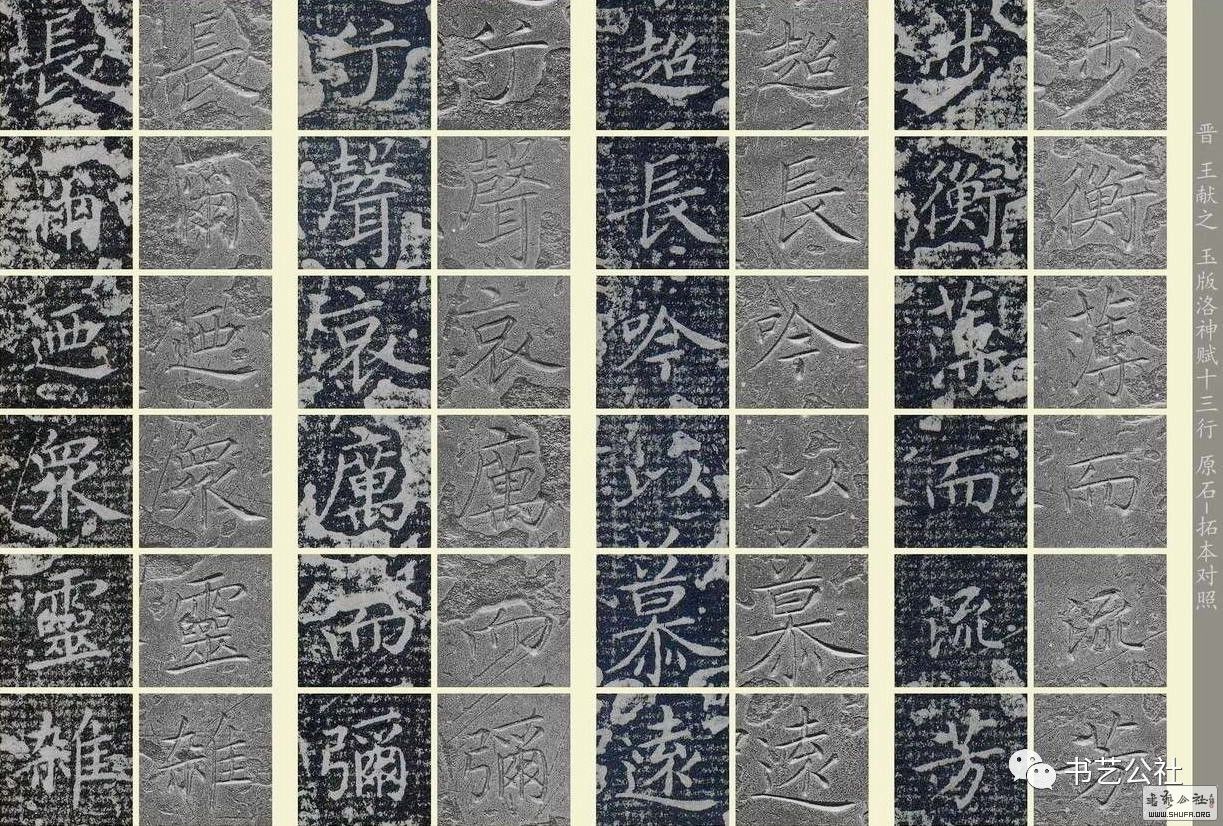 晋 王献之 玉版洛神赋十三行 原石-拓本对照
步衡薄而流芳
步衡薄而流芳
超長吟以慕遠
超長吟以慕遠
兮聲哀厲而彌
兮聲哀厲而彌
長爾迺衆靈雜
長爾迺衆靈雜
书艺公社
书艺公社
WWW.SHUFA.ORG